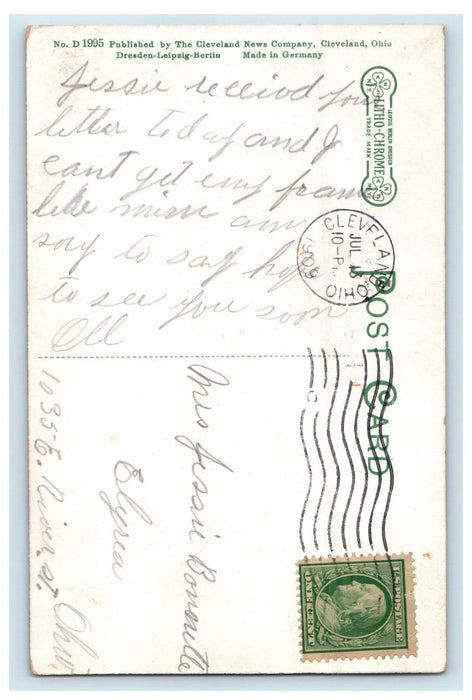 No. D 1995 Published by The Cleveland News Company, Cleveland, Ohio
Dresden-Leipzig-Berlin Made in Germany
LITHO-CHROME
LEIPZIG BERLIN DRESDEN
TRADE MARK
POST CARD
CLEVELAND, OHIO
JUL 13
10-P
1909
Jessie receivd your
letter today and I
cant get eny frame
like mine am
sory to say hope
to see you soon
Ell
Miss Jessie
Elyrea
1035 E. River st. Ohio
U.S. POSTAGE
ONE CENT